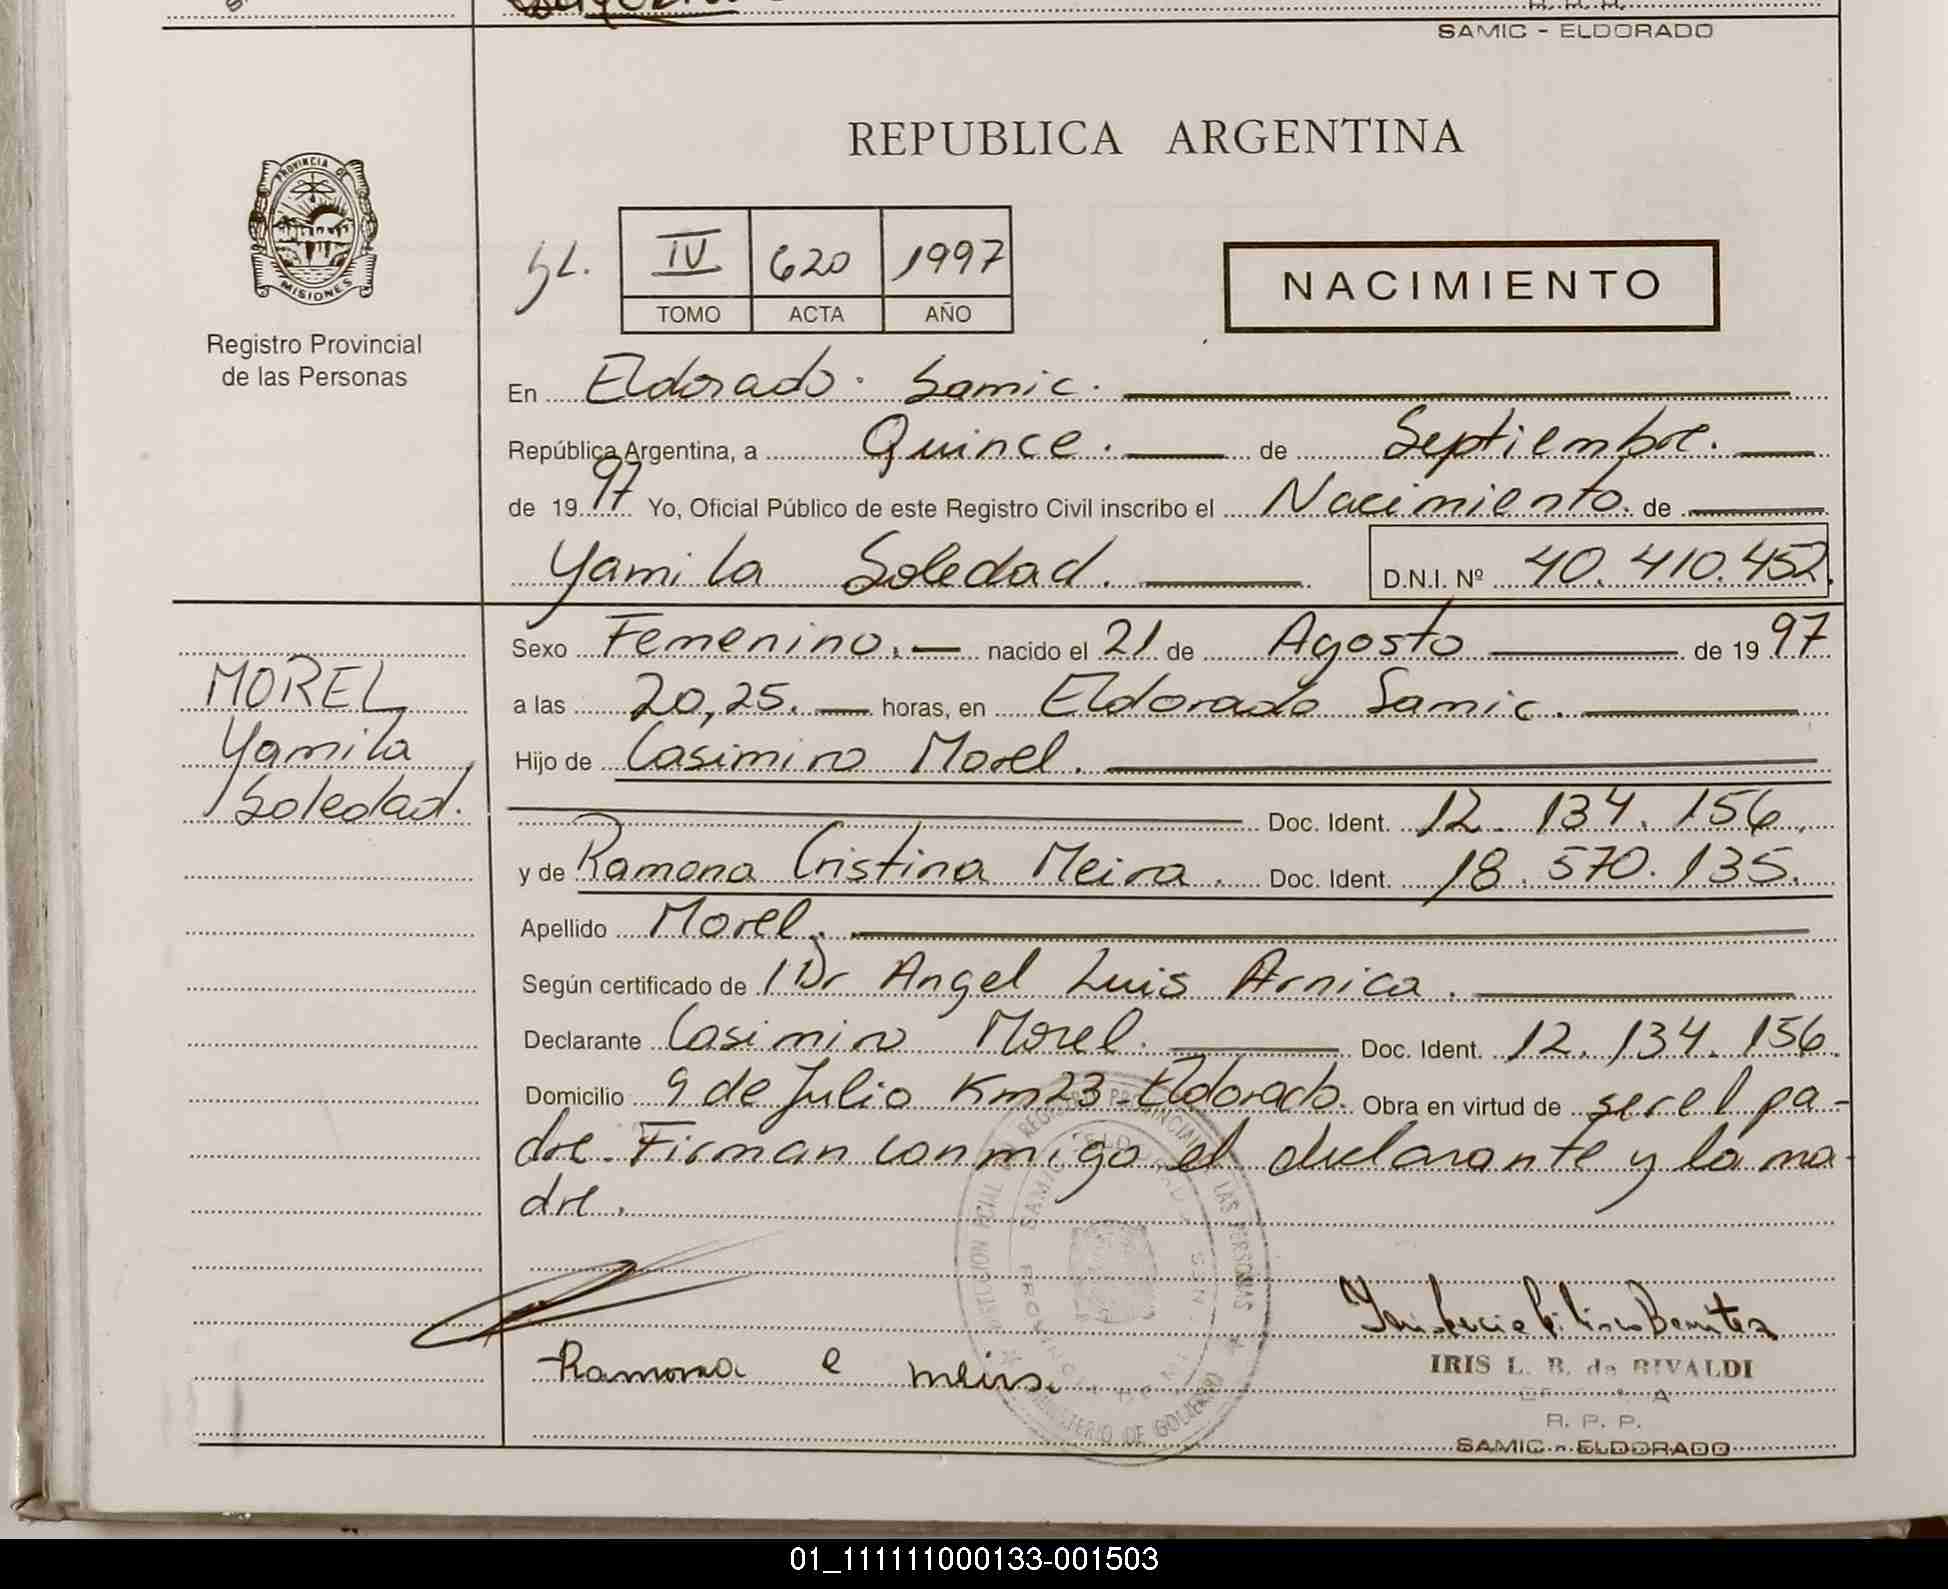 SAMIC - ELDORADO
REPUBLICA ARGENTINA
PROVINCIA DE
MISIONES
Registro Provincial
de las Personas
IV 620 1997
TOMO ACTA AÑO
NACIMIENTO
En Eldorado. Samic.
República Argentina, a Quince. de Septiembre.
de 1997 Yo, Oficial Público de este Registro Civil inscribo el Nacimiento. de
Yamila Soledad. D.N.I. Nº 40.410.452.
MOREL
Yamila
Soledad.
Sexo Femenino. nacido el 21 de Agosto de 1997
a las 20,25. horas, en Eldorado Samic.
Hijo de Casimiro Morel.
Doc. Ident. 12.134.156.
y de Ramona Cristina Meira. Doc. Ident. 18.570.135.
Apellido Morel.
Según certificado de / Dr Angel Luis Arnica.
Declarante Casimiro Morel. Doc. Ident. 12.134.156.
Domicilio 9 de Julio Km23-Eldorado. Obra en virtud de ser el pa-
dre. Firman conmigo el declarante y la ma-
dre.
Ramona C Meira
IRIS L. B. de RIVALDI
R. P. P.
SAMIC - ELDORADO
01_111111000133-001503